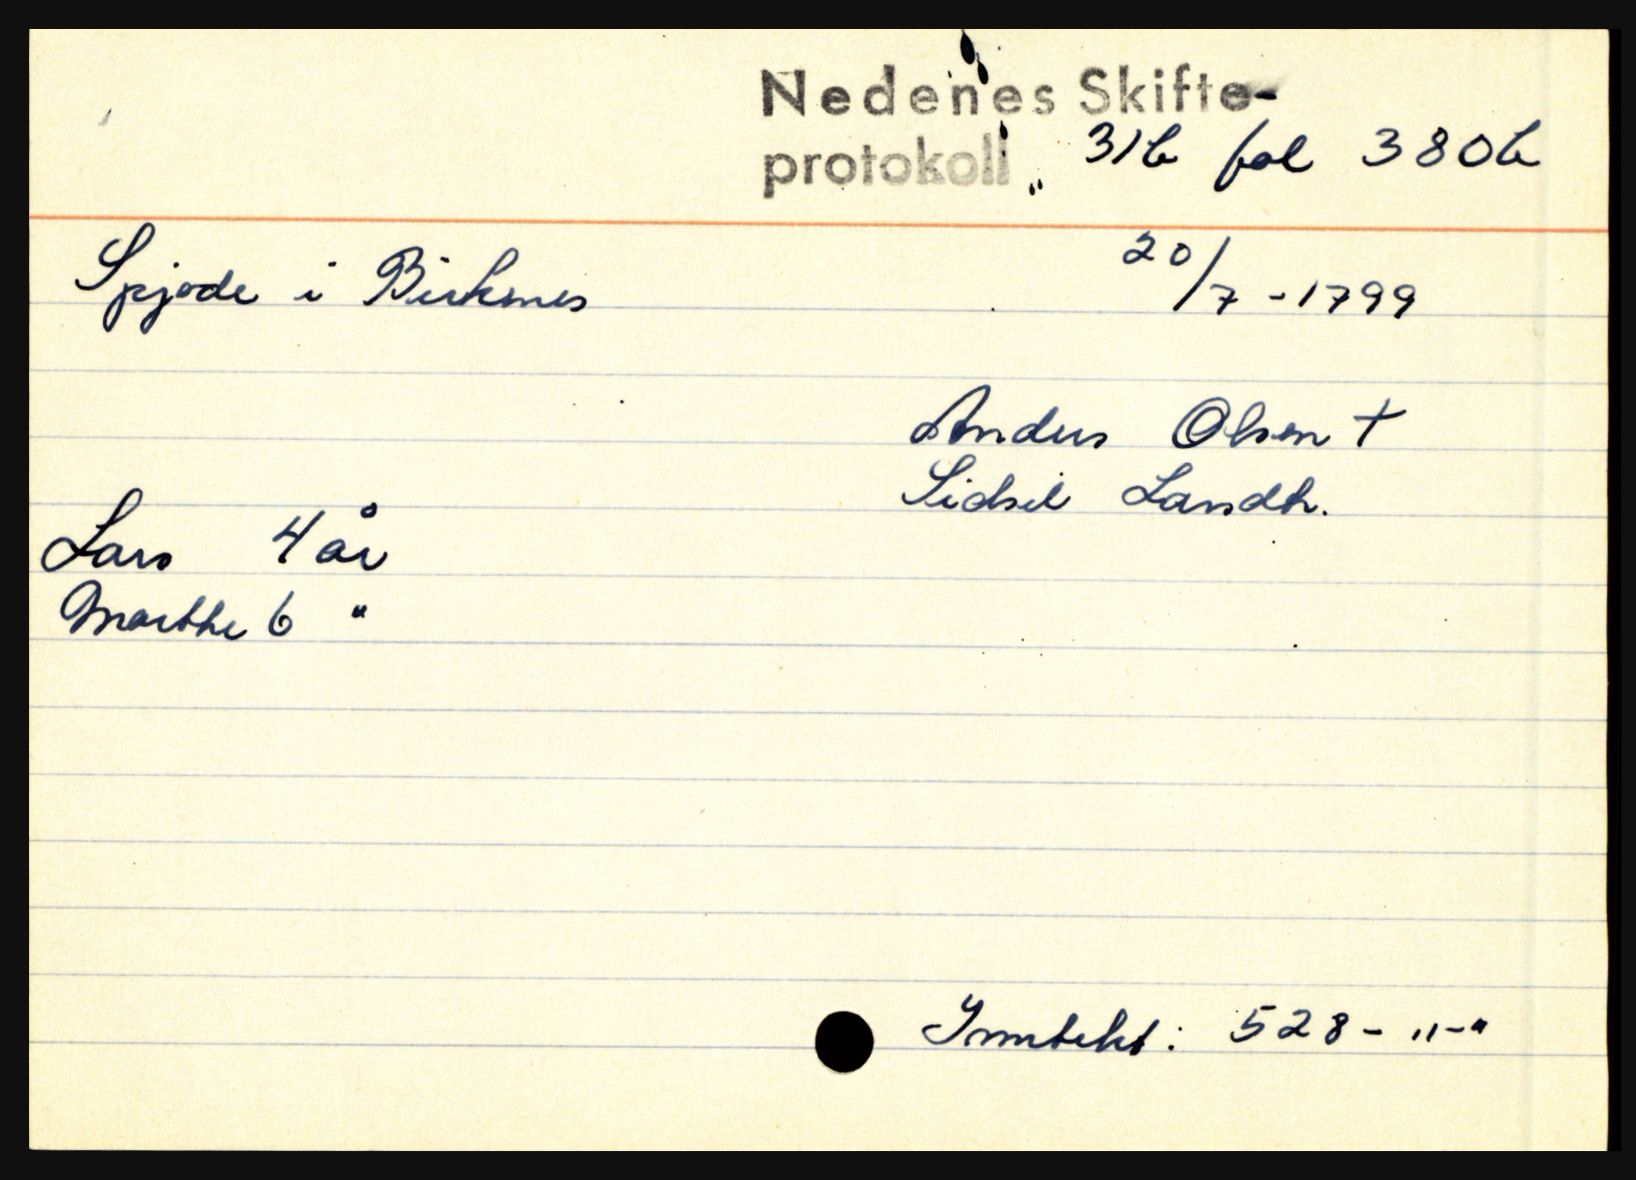 Nedenes Skifte-
protokoll „ 31b fol 380b
Spjode i Birkenes 20/7 - 1799
Anders Olsen †
Sidsel Larsdtr.
Lars 4 år
Marthe 6 "
Inntekt: 528 - " - "